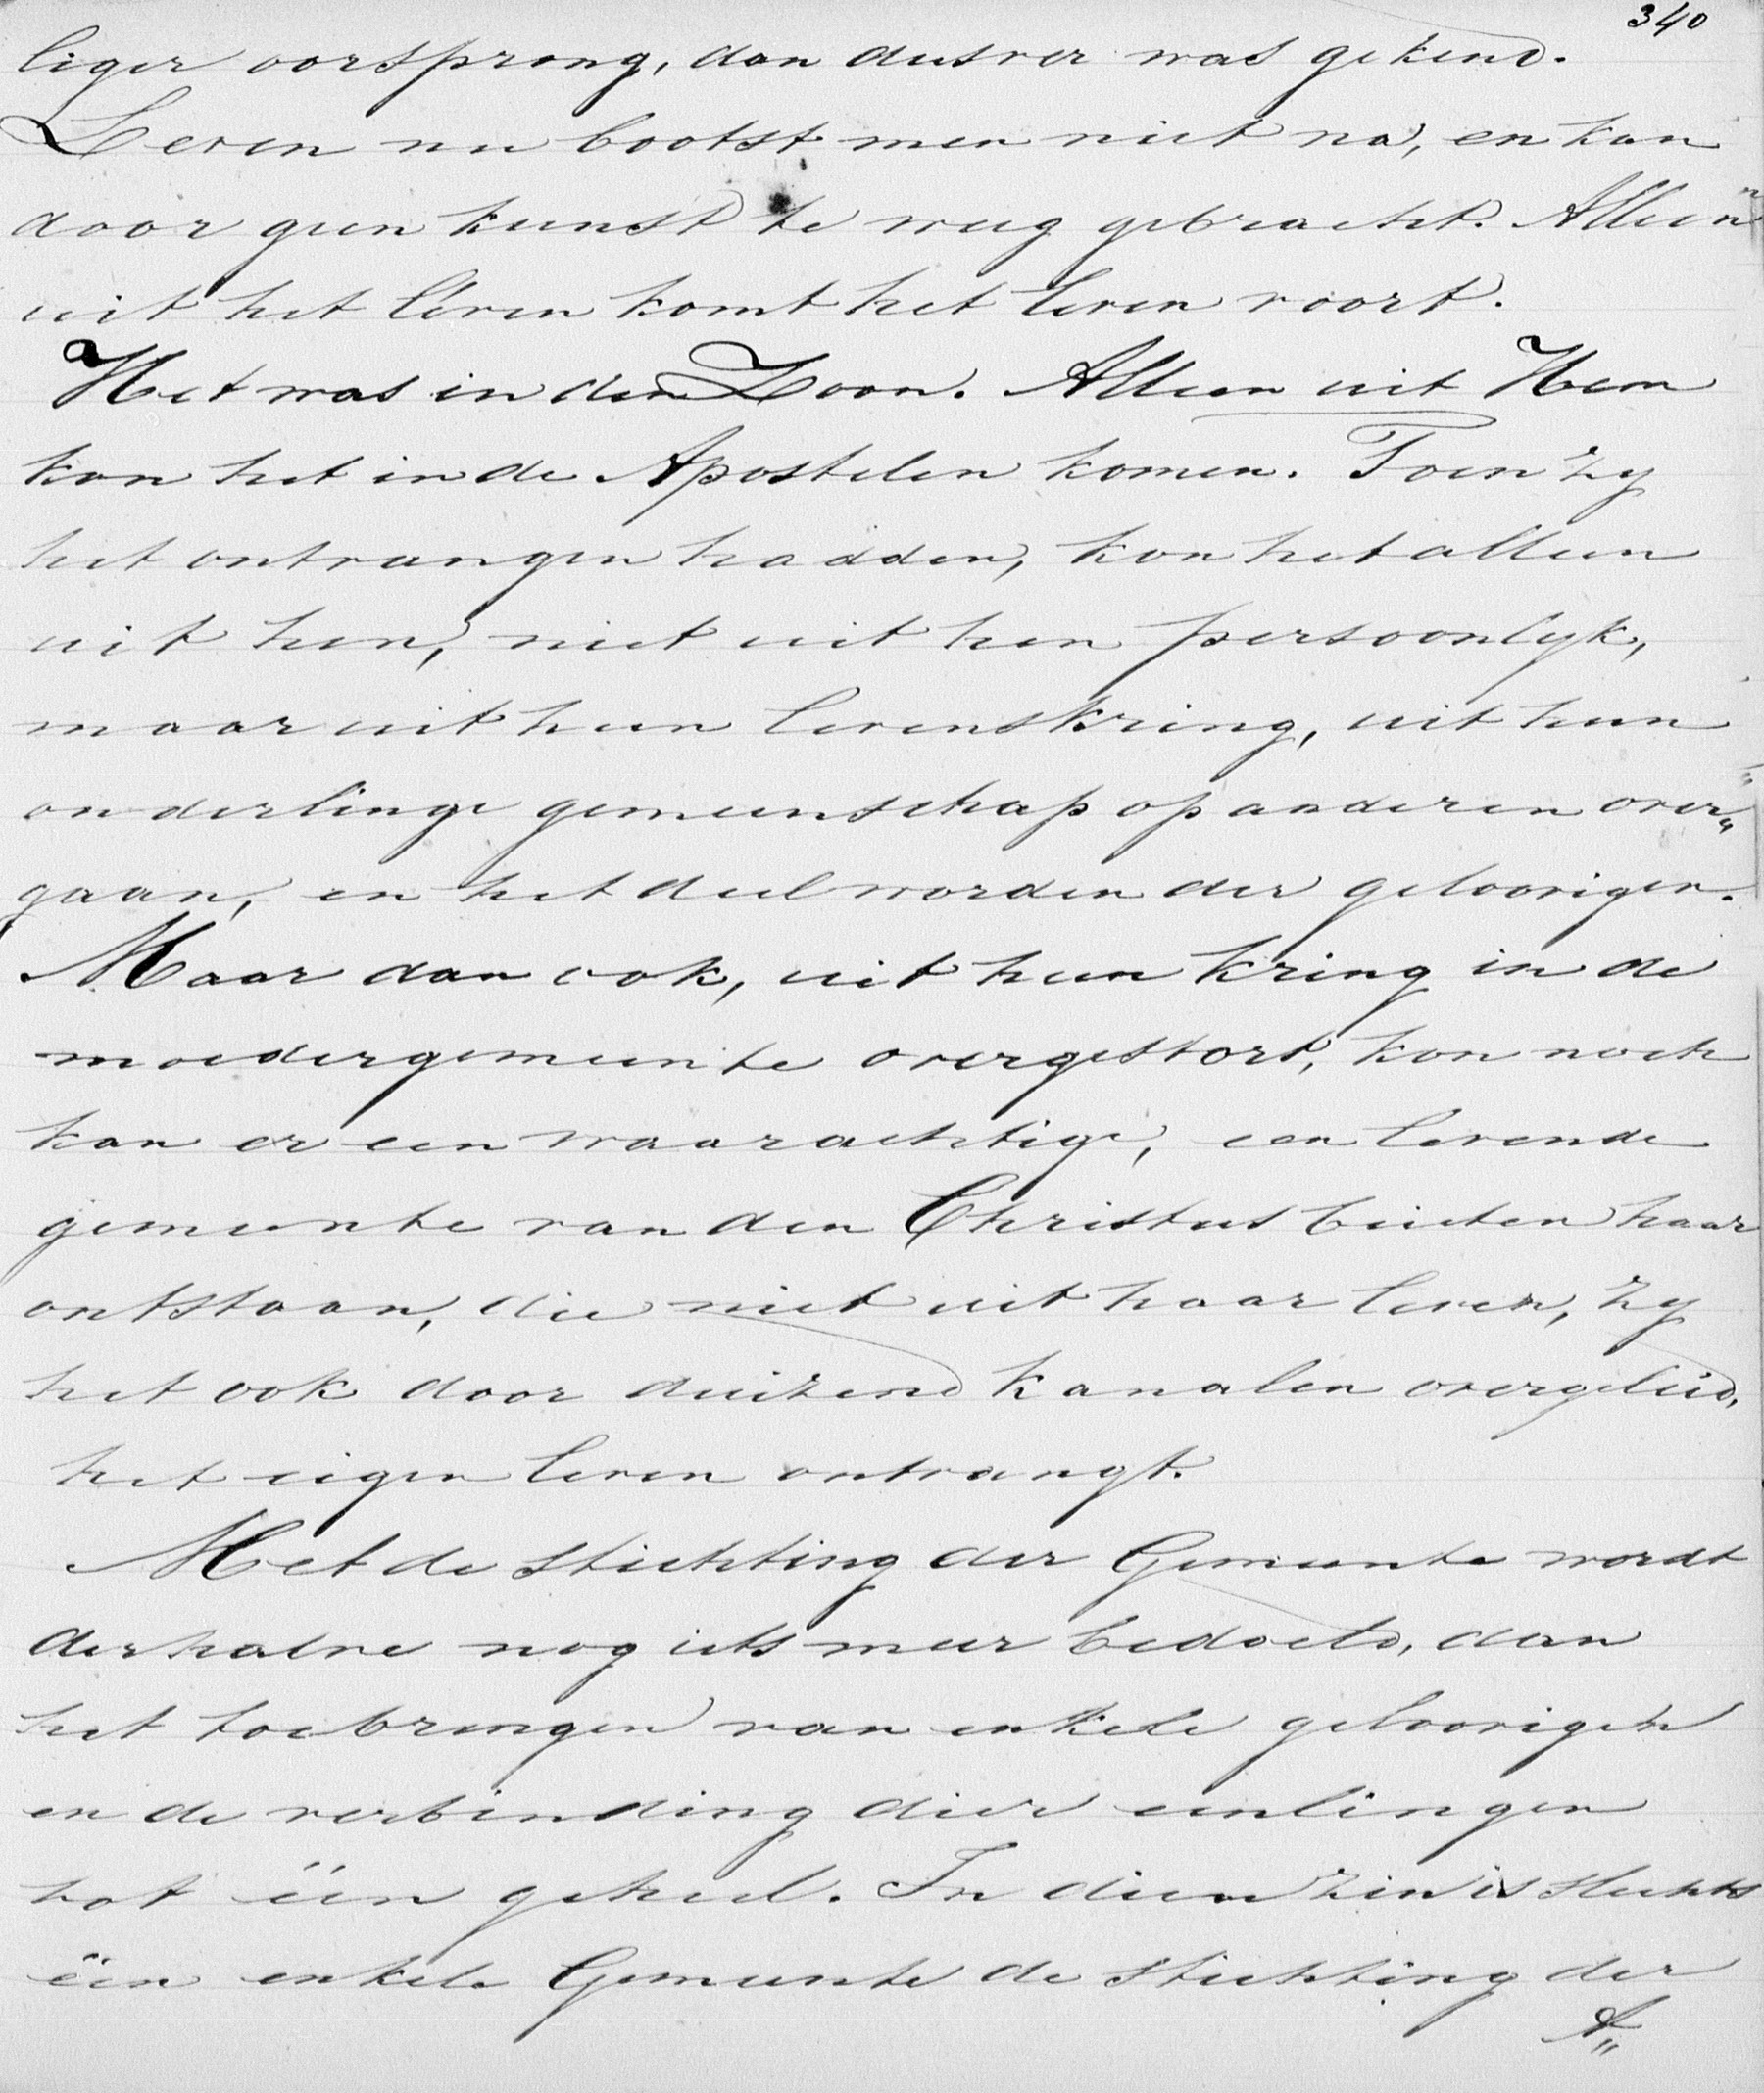 340
liger oorsprong, dan dusver was gekend.
Leven nu bootst men niet na, en kan
door geen kunst te weeg gebracht. Alleen
uit het leven komt het leven voort.
Het was in den Zoon. Alleen uit Hem
kon het in de Apostelen komen. Toen zy
het ontvangen hadden, kon het alleen
uit hen, niet uit hen persoonlyk,
maar uit hun levenskring, uit hun
onderlinge gemeenschap op anderen over„
gaan, en het deel worden der geloovigen.
Maar dan ook, uit hun kring in de
moedergemeente overgestort, kon noch
kan er een waarachtige, een levende
gemeente van den Christus buiten haar
ontstaan, die niet uit haar leven, zy
het ook door duizend kanalen overgeleid,
het eigen leven ontvangt.
Met de stichting der Gemeente wordt
derhalve nog iets meer bedoeld, dan
het toebrengen van enkele geloovigen
en de verbinding dier eenlingen
tot één geheel. In dien zin is slechts
één enkele Gemeente de stichting der
A„